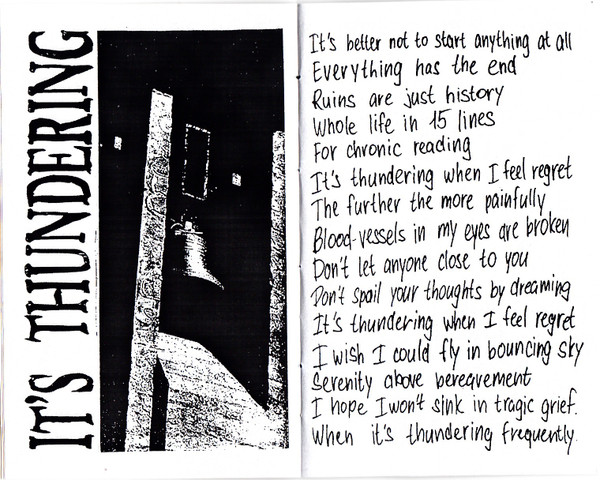 IT'S THUNDERING
It's better not to start anything at all
Everything has the end
Ruins are just history
Whole life in 15 lines
For chronic reading
It's thundering when I feel regret
The further the more painfully
Blood-vessels in my eyes are broken
Don't let anyone close to you
Don't spail your thoughts by dreaming
It's thundering when I feel regret
I wish I could fly in bouncing sky
Serenity above bereavement
I hope I won't sink in tragic grief.
When it's thundering frequently.